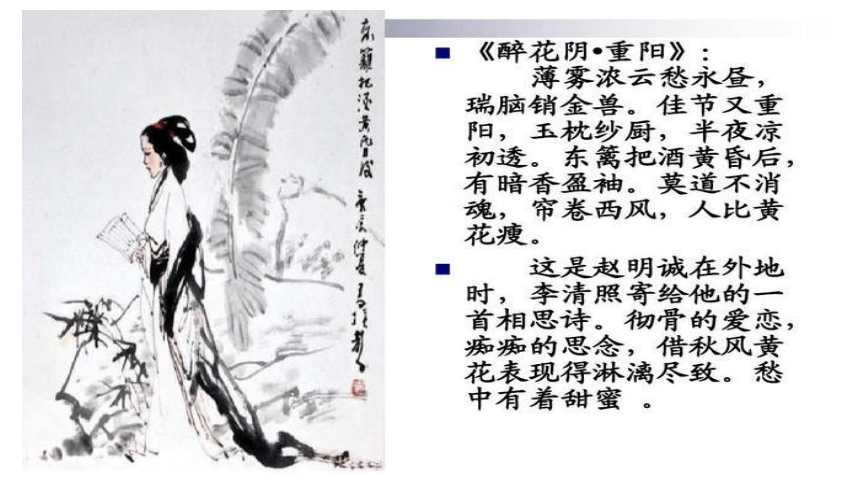 《醉花阴•重阳》:
薄雾浓云愁永昼,
瑞脑销金兽。佳节又重
阳,玉枕纱厨,半夜凉
初透。东篱把酒黄昏后,
有暗香盈袖。莫道不消
魂,帘卷西风,人比黄
花瘦。
这是赵明诚在外地
时,李清照寄给他的一
首相思诗。彻骨的爱恋,
痴痴的思念,借秋风黄
花表现得淋漓尽致。愁
中有着甜蜜 。
東籬把酒黄昏後